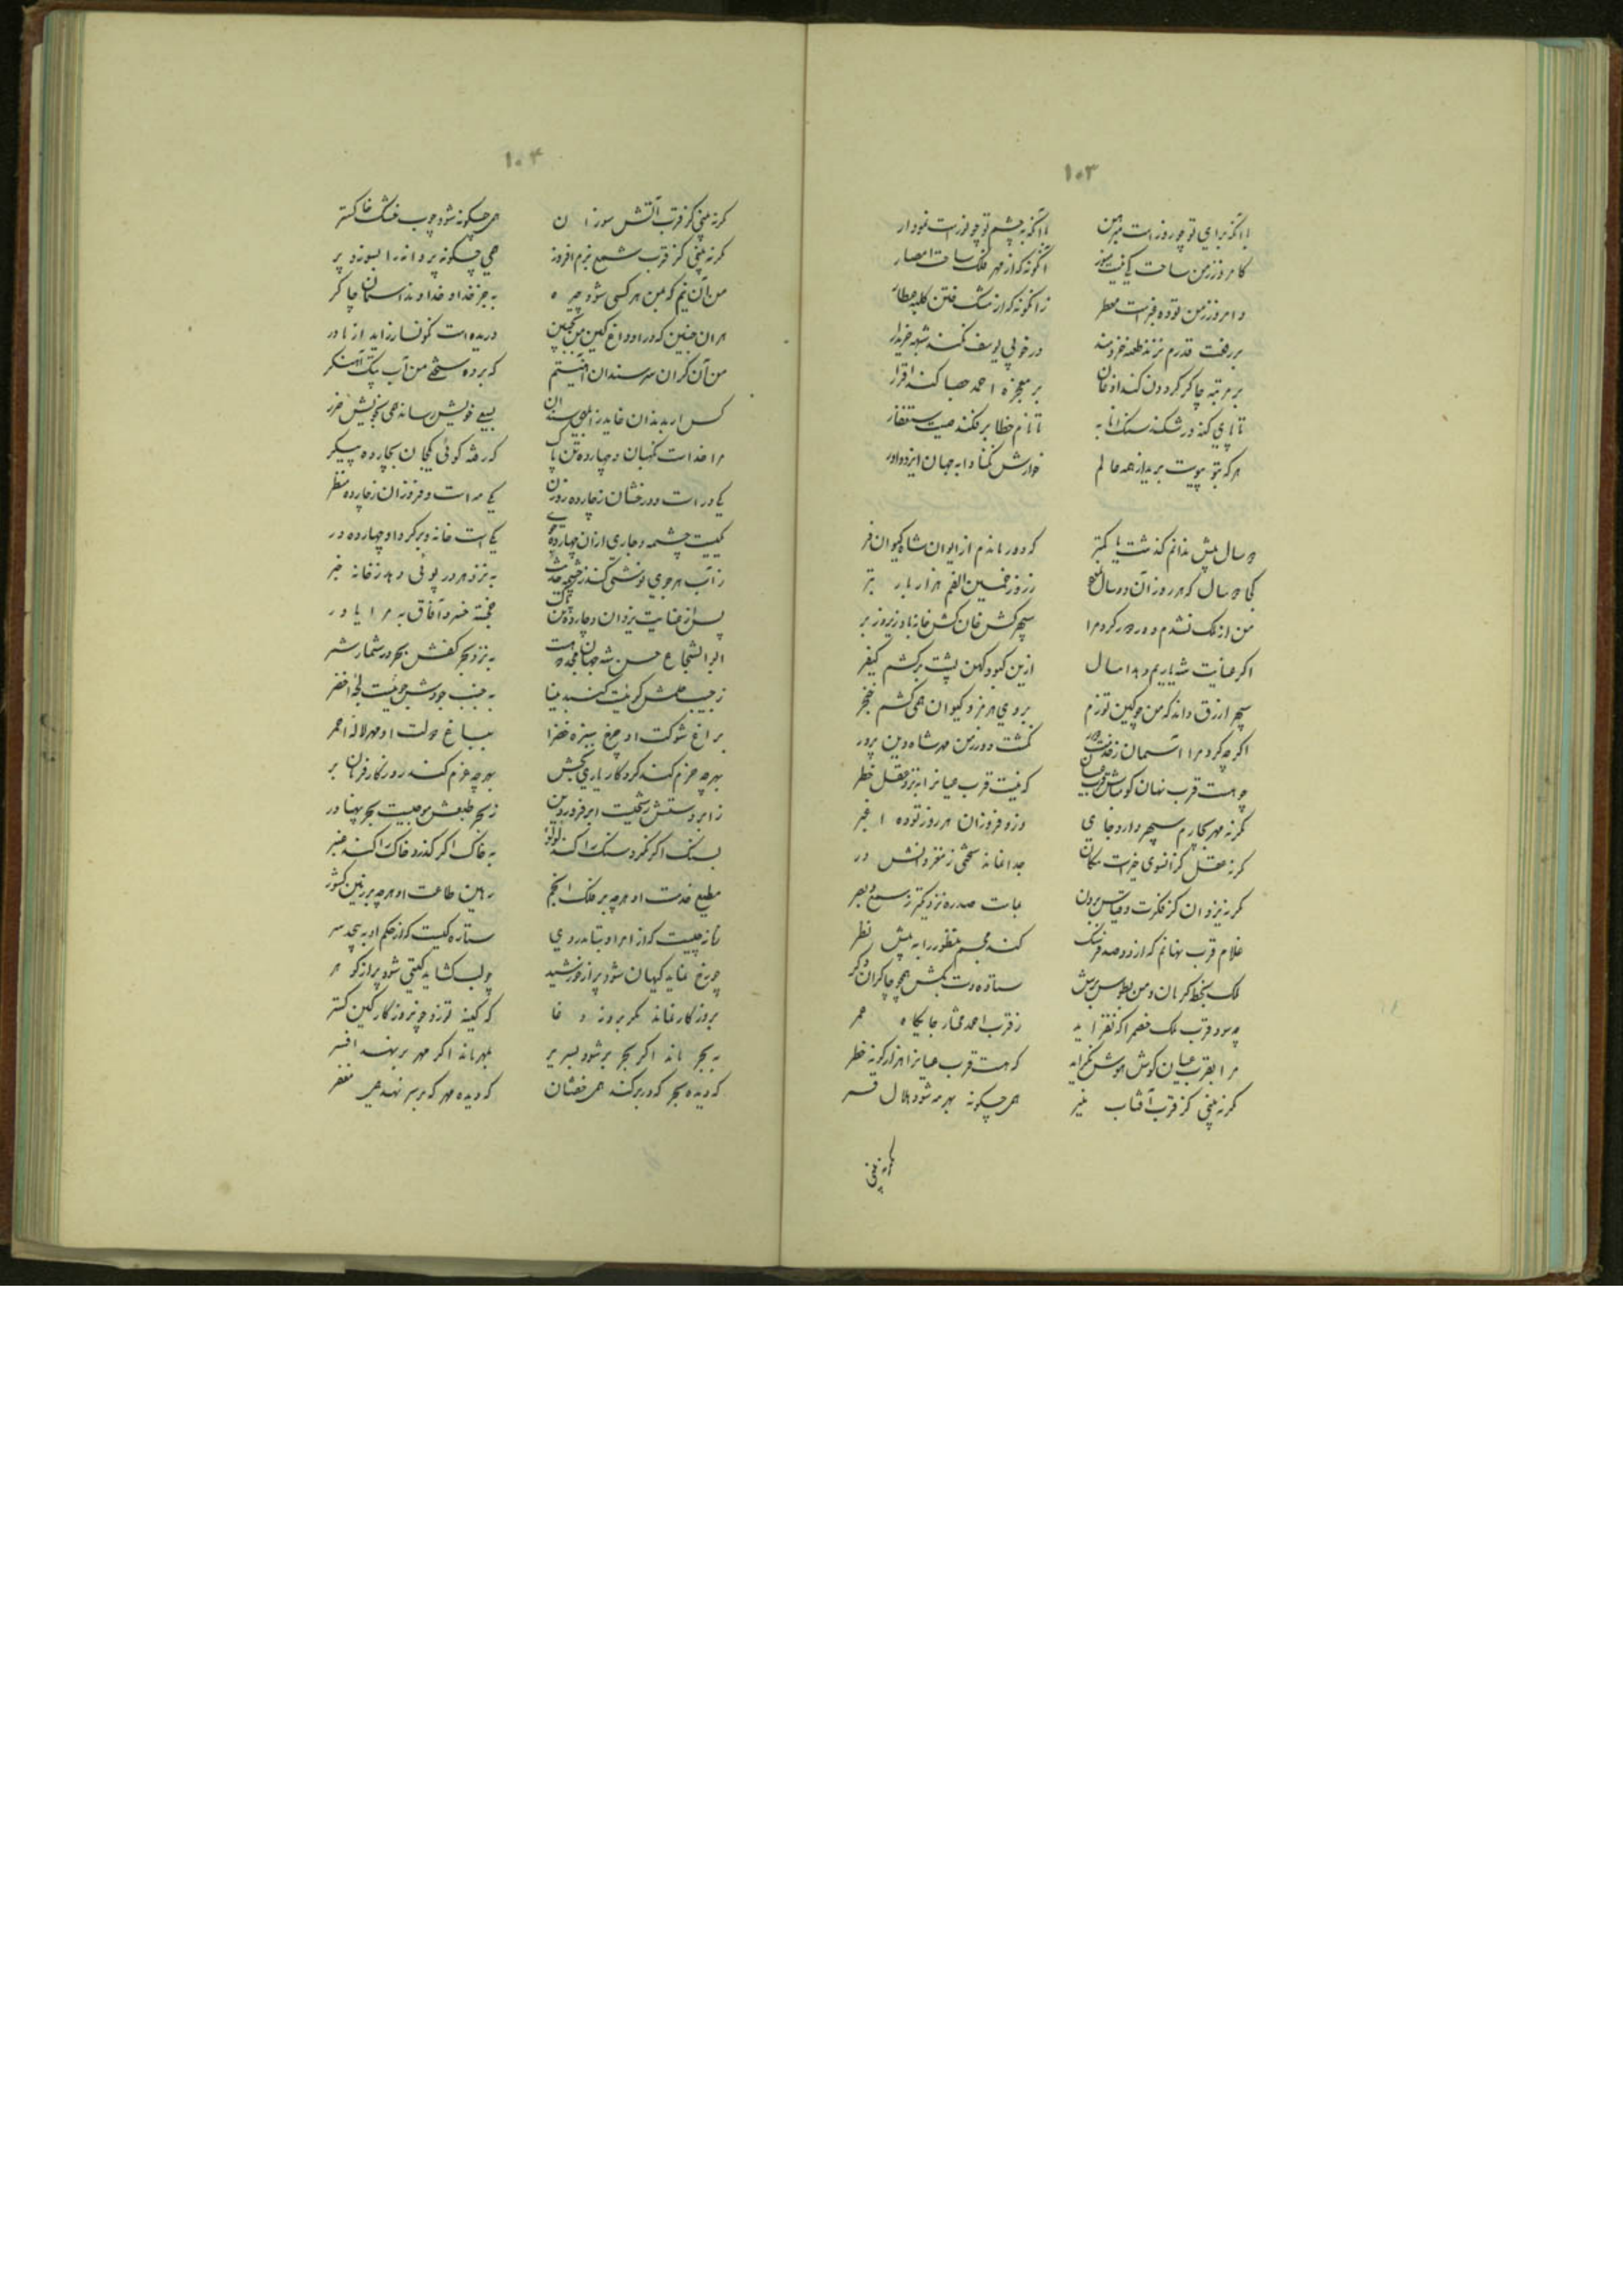 ۱۰۳
با آنکه برای تو چو روز است مبرهن با آنکه بچشم تو چو نور است نمودار
کامروز ز من ساحت گیتیست آنگونه که از مهر فلک ساحت امصار
و امروز ز من توده غبراست معطر زانگونه که از مشک ختن کلبه عطار
بر رفعت قدرم نزند طعنه خردمند در خوبی یوسف نکند شبهه خریدار
بر مرتبه چاکر گردون کند اذعان بر معجزه احمد حصبا کند اقرار
تا پای کنه در شکند سنک انابه تا نام خطا بر فکند صیت ستغفار
هر که بتو پیوست برید از همه عالم خوارش مکناد به جهان ایزد دادار
دو سال پیش ندانم گذشت یا کمتر که دور ماندم از ایوان شاه کیوان فر
کجا دو سال که هر روز آن دو سال ز روز خمسین الفم هزار بار بتر
من از ملک نشدم دور دور کرد مرا سپهر کش خان کش خانه باد زیر و زبر
اگر عنایت شه یاریم دهد امسال ازین کبود کهن پشت برکشم کیفر
سپهر ازرق داند که من چو کین توزم بروی هرمز و کیوان همی کشم خنجر
اگر چه کرد مرا آسمان ز خدمت دور نگشت دور ز من مهر شاه دین پرور
چو هست قرب نهان گو مباش قرب عیان که نیست قرب عیان را بنزد عقل خطر
گر نه مهر بچارم سپهر دارد جای وزو فروزان هر روز توده اغبر
گر نه عقل کز انسوی حیز است و مکان جداغانه سخنی ز مغز دانش در
گر نه یزدان کز فکرت و قیاس برون عبات صدره نزدیکتر ز سمع و بصر
غلام قرب نهانم که از دو صد فرسنک کند مجسم منظور را به پیش نظر
ملک بخطه کرمان و من بطوس برش ستاده دست بکش همچو چاکران دگر
چه سود قرب ملک خصم را که نفزاید ز قرب احمد مختار جایگاه عمر
مرا بقرب عیان گوش هوش نگراید که هست قرب عیان را هزار گونه خطر
گر نه بینی کز قرب آفتاب منیر همی چگونه بهر مه شود هلال قمر
گر نه بینی
۱۰۴
گر نه بینی کز قرب آتش سوزان همی چگونه شود چوب خشک خاکستر
گر نه بینی کز قرب شمع بزم افروز همی چگونه پروانه را بسوزد پر
من آن نیم که بمن هر کسی شود چیره به جز خدا و خداوند آسمان چاکر
هر ان جنین که در او داغ کین من دریده است کونسار زاید از مادر
من آن گران سر سندان که برده سختی من آب پتک آهنگر
کس ار بدندان خاید ز ابلهی سندان بسعی خویش رساند همی بخویش ضرر
مرا خداست نگهبان و چهارده تن پاک که رفته گوئی یکجان بچارده پیکر
یکی در است و درخشان ز چارده روزن یکی مه است و فروزان ز چارده منظر
یکیست چشمه و جاری از ان چهارده جوی یکی است خانه و بر گرد او چهارده در
ز آب هر جوی نوشی کند ز چشمه حدیث به نزد هر در پوئی دهد ز خانه خبر
پس از عنایت یزدان و چارده تن پاک خجسته خسرو آفاق به مرا یاور
ابوالشجاع حسن شه جهان به نزد بحر کفش بحر در شمار شمر
ز جیب حلمش گوئیست گنبد مینا به جنب جودش جوئیست لجه اخضر
براغ شوکت او چرخ سبزه خضرا بباغ دولت او مهر لاله احمر
بهر چه حزم کند کردگار یاری بخش بهر چه عزم کند روزگار فرمان بر
ز ابر دستش رشحیست ابر فروردین ز بحر طبعش موجیست بحر پهناور
بسنک اگر نگرد سنک را کند لؤلؤ به خاک اگر گذرد خاک را کند عنبر
مطیع خدمت او هر چه بر فلک انجم رهین طاعت او هر چه بر زمین کشور
زمانه چیست که از امر او بتابد روی ستاره کیست که از حکم او به پیچد سر
چو رخ نماید کیهان شود پر از خورشید چو لب گشاید گیتی شود پر از گوهر
بروزگار نماند مگر بروز وغا که کینه توزد چو نروزگار کین گستر
به بحر ماند اگر بحر بر شود بسریر بمهر ماند اگر مهر بر نهد افسر
که دیده بحر که در بر کند همی خفتان که دیده مهر که بر سر نهد همی مغفر